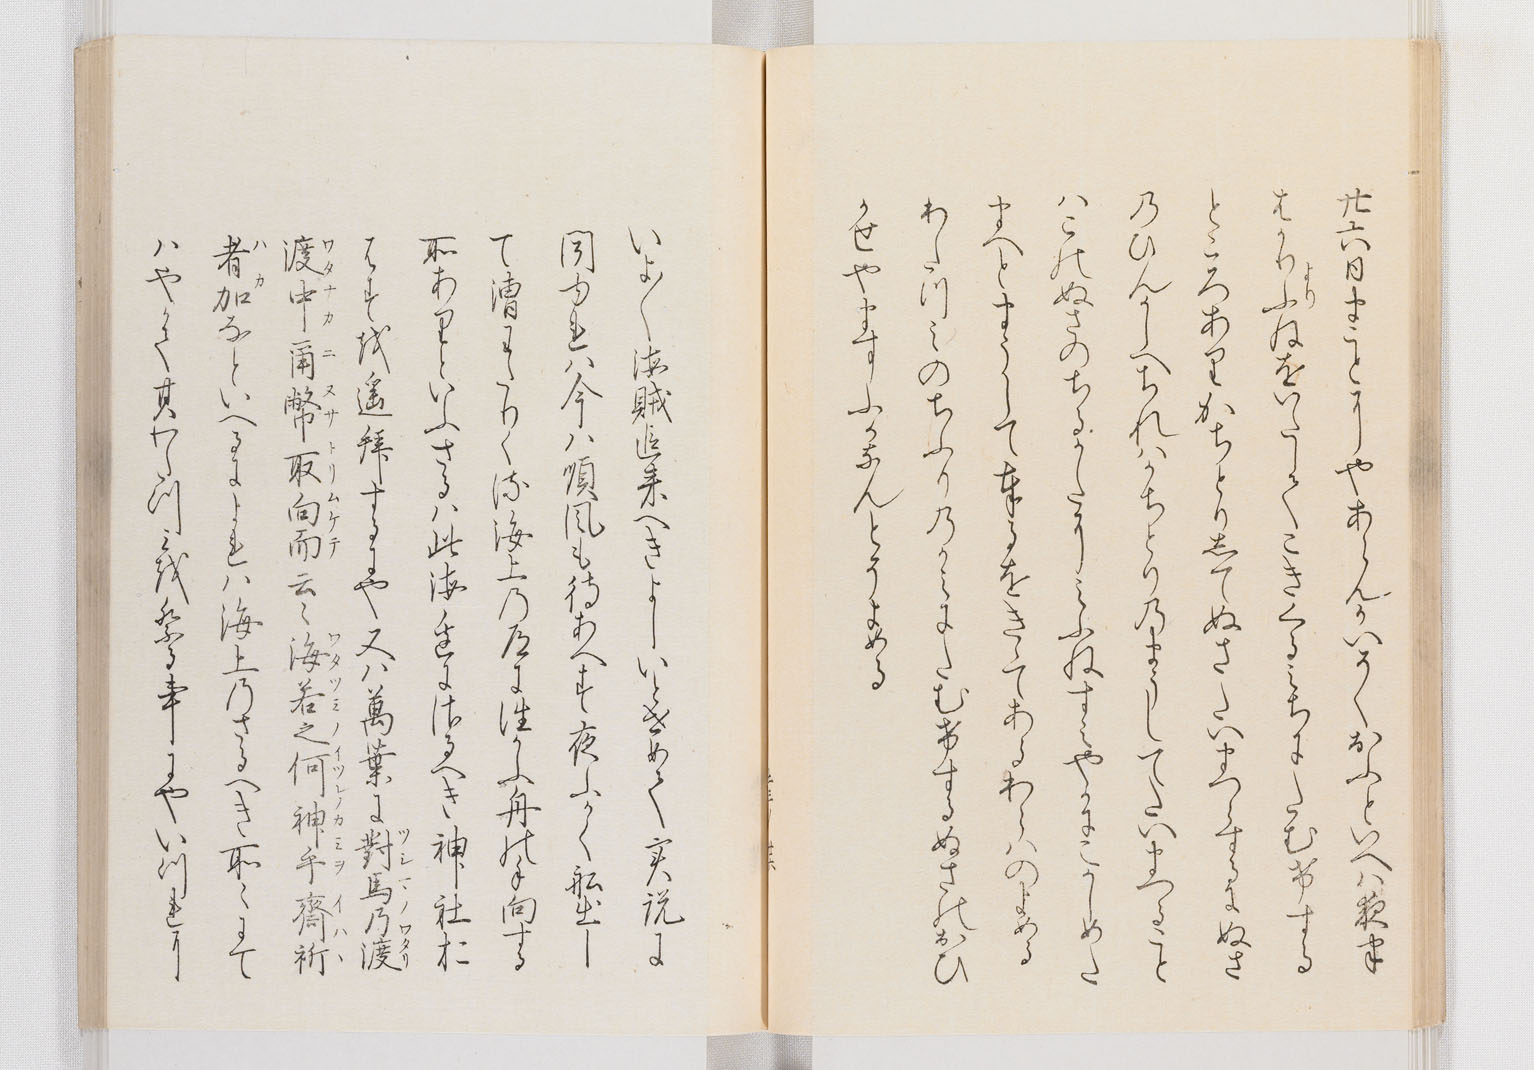 廿六日まことにやあらんかいそくおふといへは夜半
はかりよりふねをいたしてこきくるみちにたむけする
ところありかちとりしてぬさたいまつらするにぬさ
のひんかしへちれはかちとりのまうしてたいまつること
はこのぬさのちるかたにみふねすみやかにこかしめた
まへとまうして奉るをきゝてあるわらはのよめる
わたつみのちふりのかみにたむけするぬさのおひ
かせやますふかなんとそよめる
いよ〳〵海賊追来へきよしいひさためて実説に
聞ゆれは今は順風も待あへす夜ふかく船出し
て漕きたりく流海上の道に誰かふ舟の手向する
所ありといふさるは此海邊に法るへき神社お
はします遥拝するにや又は萬葉に對馬の渡ツシマノワタリ
渡中爾幣取向而云々海若之何神乎齋祈ワタナカニヌサトリムケテワタツミノイツレノカミヲイハヽ
者加ハカなといへるによれは海上のさるへき所々にて
はやくその其わたつみを祭る事にやいつれに